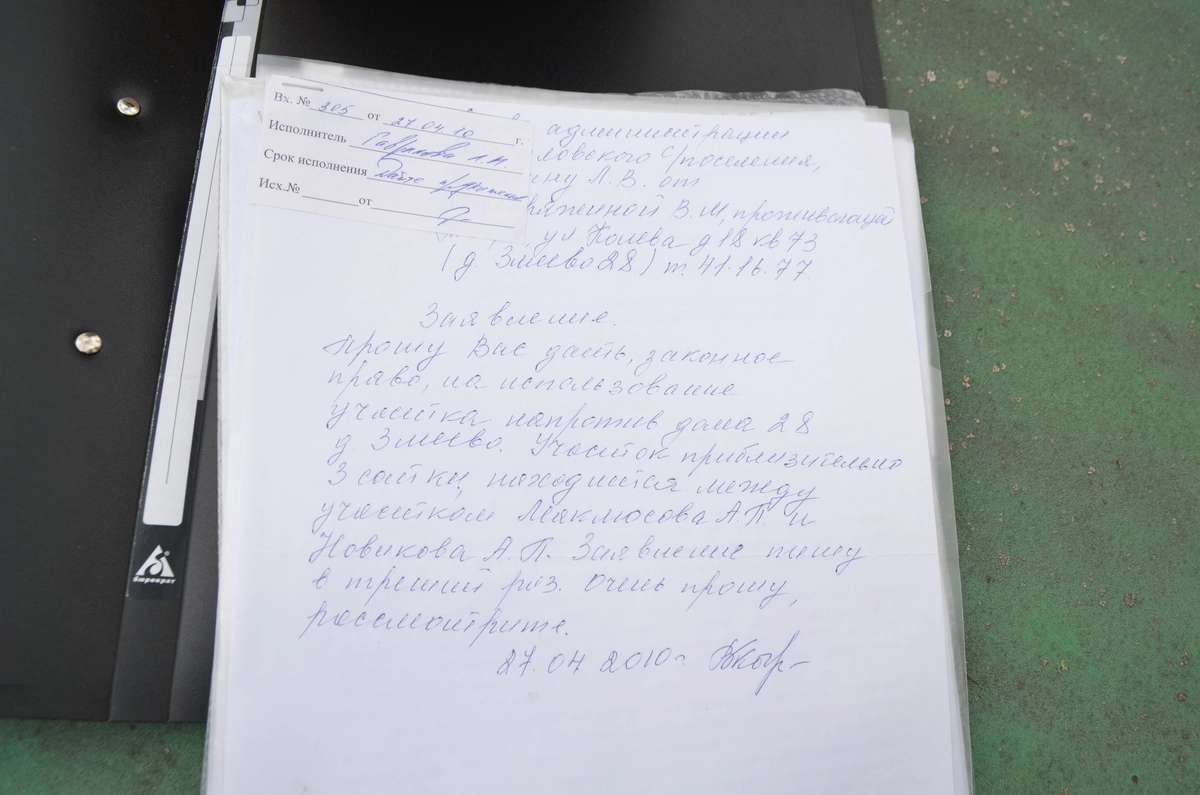 Вх. № 305 от 27.04.10 г.
Исполнитель Гаврилова
Срок исполнения Дайте
Исх.№ от
администрации
ловского с/поселения,
ину Л.В. от
ряжиной В.М, проживающей
ул Попова д 18 кв 73
(д. Змеево 28) т. 41.16.77.
Заявление.
Прошу Вас дать, законное
право, на использование
участка напротив дома 28
д. Змеево. Участок приблизительно
3 сотки, находится между
участком А.П. и
Новикова А.П. Заявление пишу
в третий раз. Очень прошу,
рассмотрите.
27.04 2010г
бюрократ